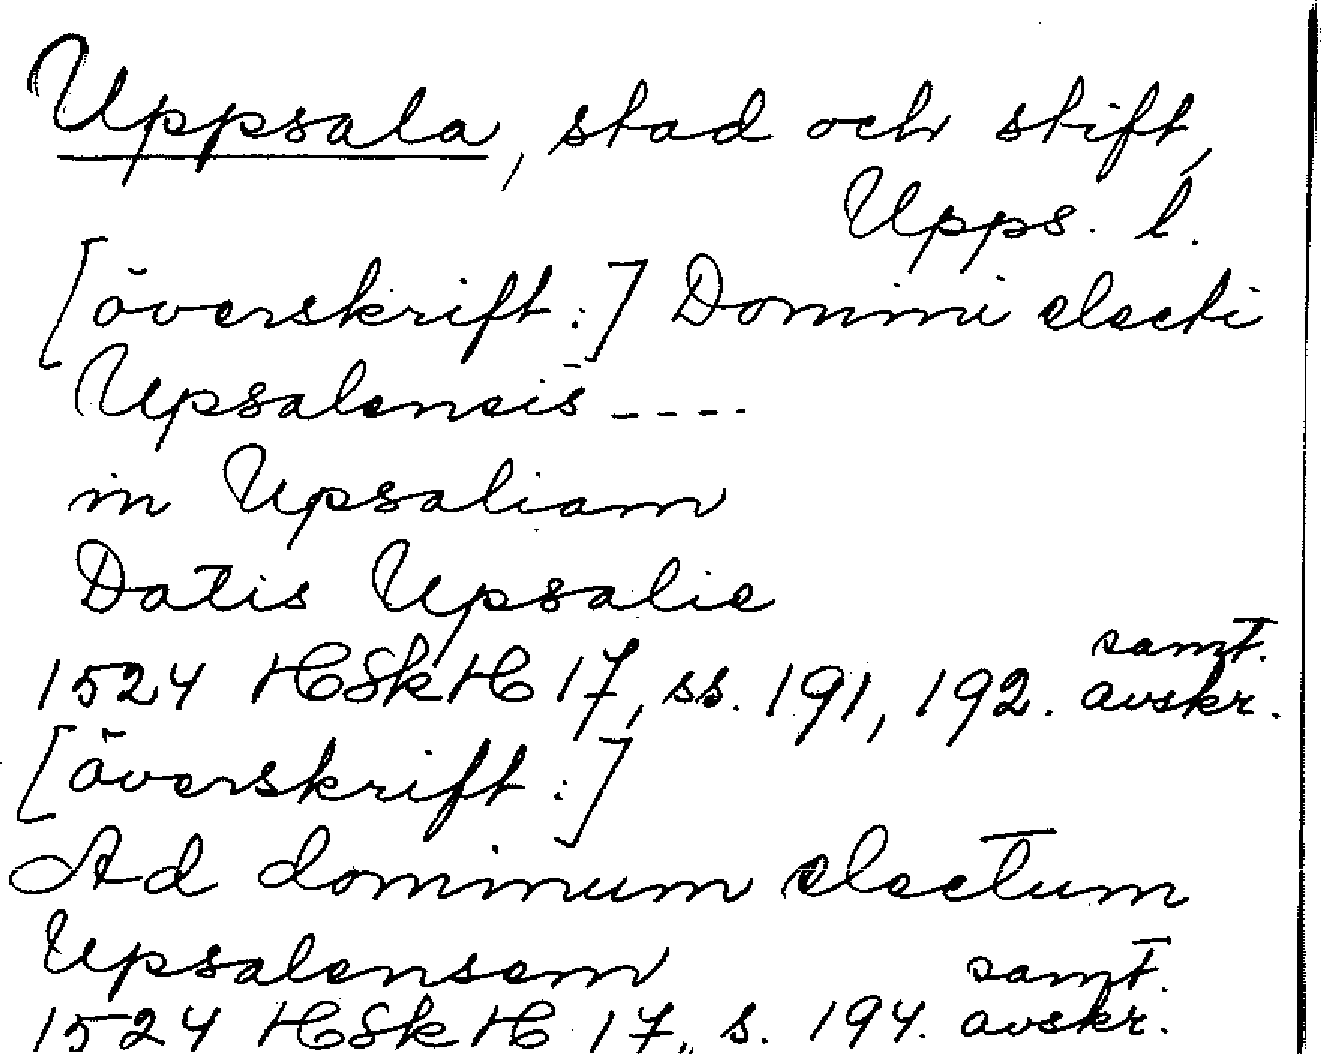 Uppsala, stad och stift,
Upps. l.
[överskrift:] Domini electi
Upsalensis ----
in Upsaliam
Datis Upsalie
samt.
1524 HSkH 17, ss. 191, 192. avskr.
[överskrift:]
Ad dominum electum
Upsalensem samt.
1524 HSkH 17, s. 194. avskr.